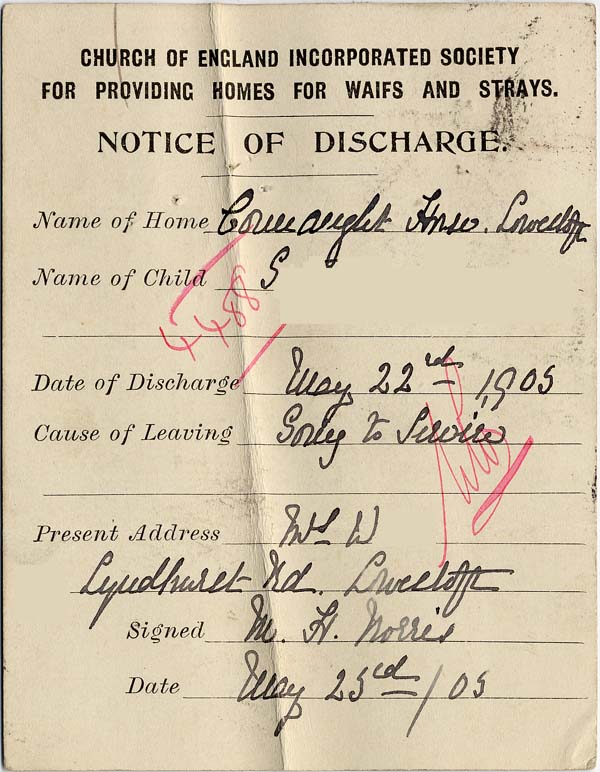 CHURCH OF ENGLAND INCORPORATED SOCIETY
FOR PROVIDING HOMES FOR WAIFS AND STRAYS.
NOTICE OF DISCHARGE.
Name of Home Connaught House. Lowestoft
Name of Child S
4488
Date of Discharge May 22nd 1905
Cause of Leaving Going to Service
Present Address Mrs W
Lyndhurst Rd. Lowestoft
Signed M. H. Norris
Date May 23rd/05